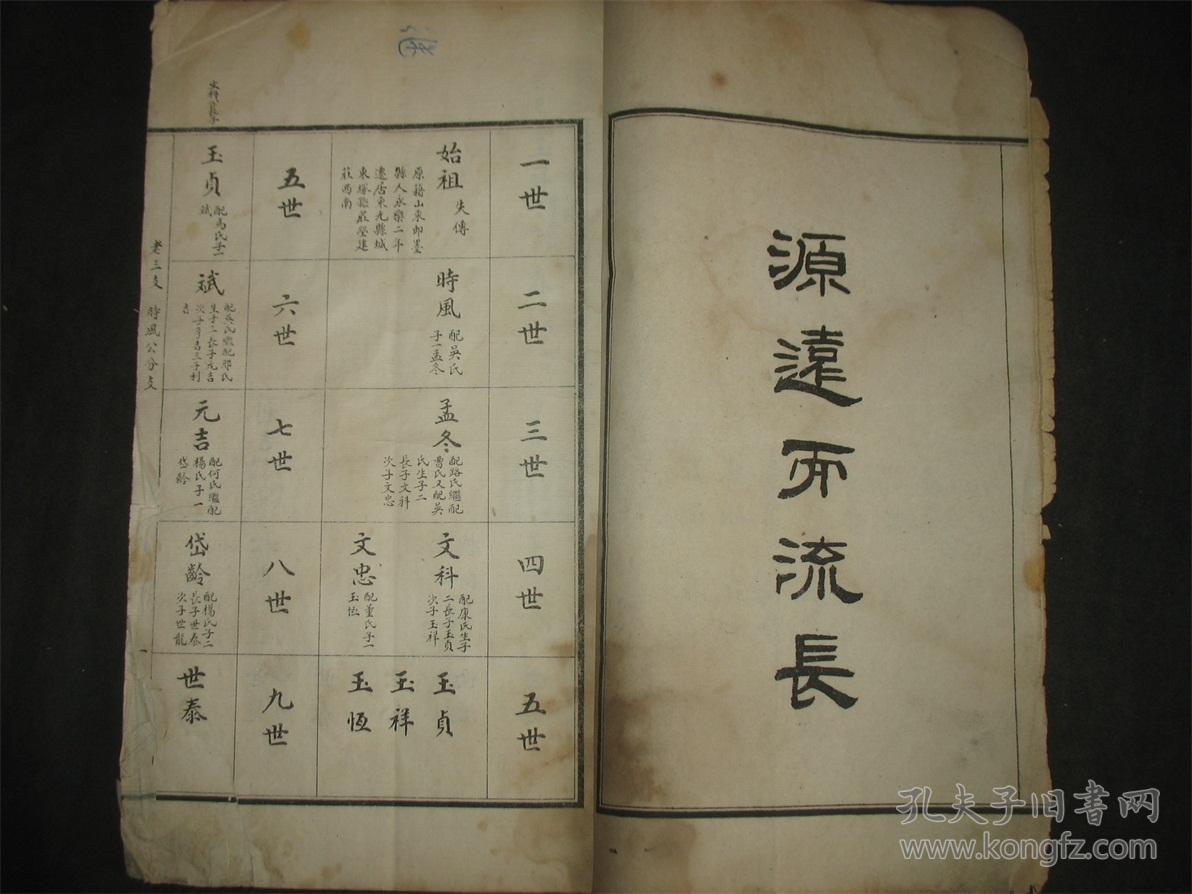 源遠而流長
一世
始祖 失傳
原籍山東即墨
縣人永樂二年
遷居東光縣城
莊西南
二世
時風
配吳氏
子一孟冬
三世
孟冬
配路氏繼配
曹氏又配吳
氏生子二
長子文科
次子文忠
四世
文科
配康氏生子
二長子玉貞
次子玉祥
文忠
配董氏子一
玉恆
五世
玉貞
玉祥
玉恆
五世
玉貞
配馬氏子一
斌
六世
斌
生子三長子元吉
次子亨吉三子利
吉
七世
元吉
配何氏繼配
楊氏子一
岱齡
八世
岱齡
配楊氏子二
長子世泰
次子世龍
九世
世泰
老三支 時風公分支
孔夫子旧书网
www.kongfz.com